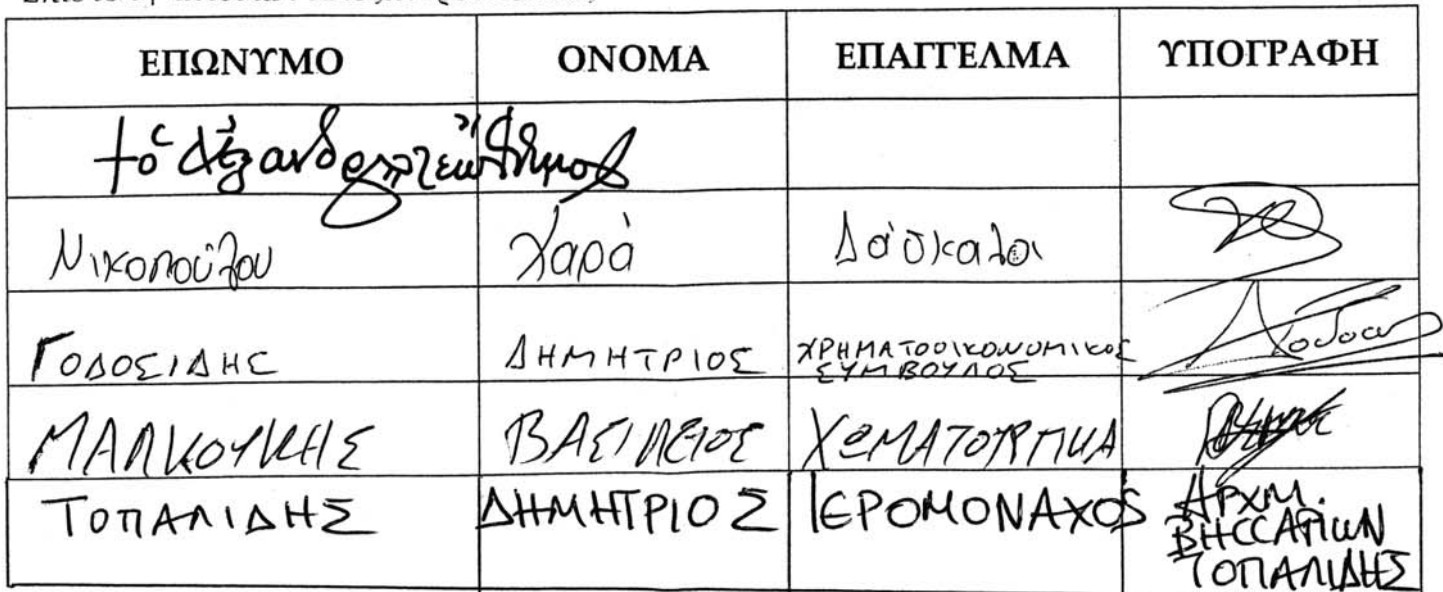 ΕΠΩΝΥΜΟ ΟΝΟΜΑ ΕΠΑΓΓΕΛΜΑ ΥΠΟΓΡΑΦΗ
Νικοπούλου Χαρά Δασκάλα
ΓΟΔΟΣΙΔΗΣ ΔΗΜΗΤΡΙΟΣ ΧΡΗΜΑΤΟΟΙΚΟΝΟΜΙΚΟΣ
ΣΥΜΒΟΥΛΟΣ
ΜΑΛΚΟΥΚΗΣ ΒΑΣΙΛΕΙΟΣ ΧΩΜΑΤΟΥΡΓΙΚΑ
ΤΟΠΑΛΙΔΗΣ ΔΗΜΗΤΡΙΟΣ ΙΕΡΟΜΟΝΑΧΟΣ ΑΡΧΜ.
ΒΗCCΑΡΙωΝ
ΤΟΠΑΛΙΔΗΣ